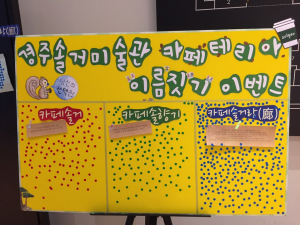 경주솔거미술관 카페테리아
이름짓기 이벤트
카페솔거
카페솔향기
카페솔거랑(廊)